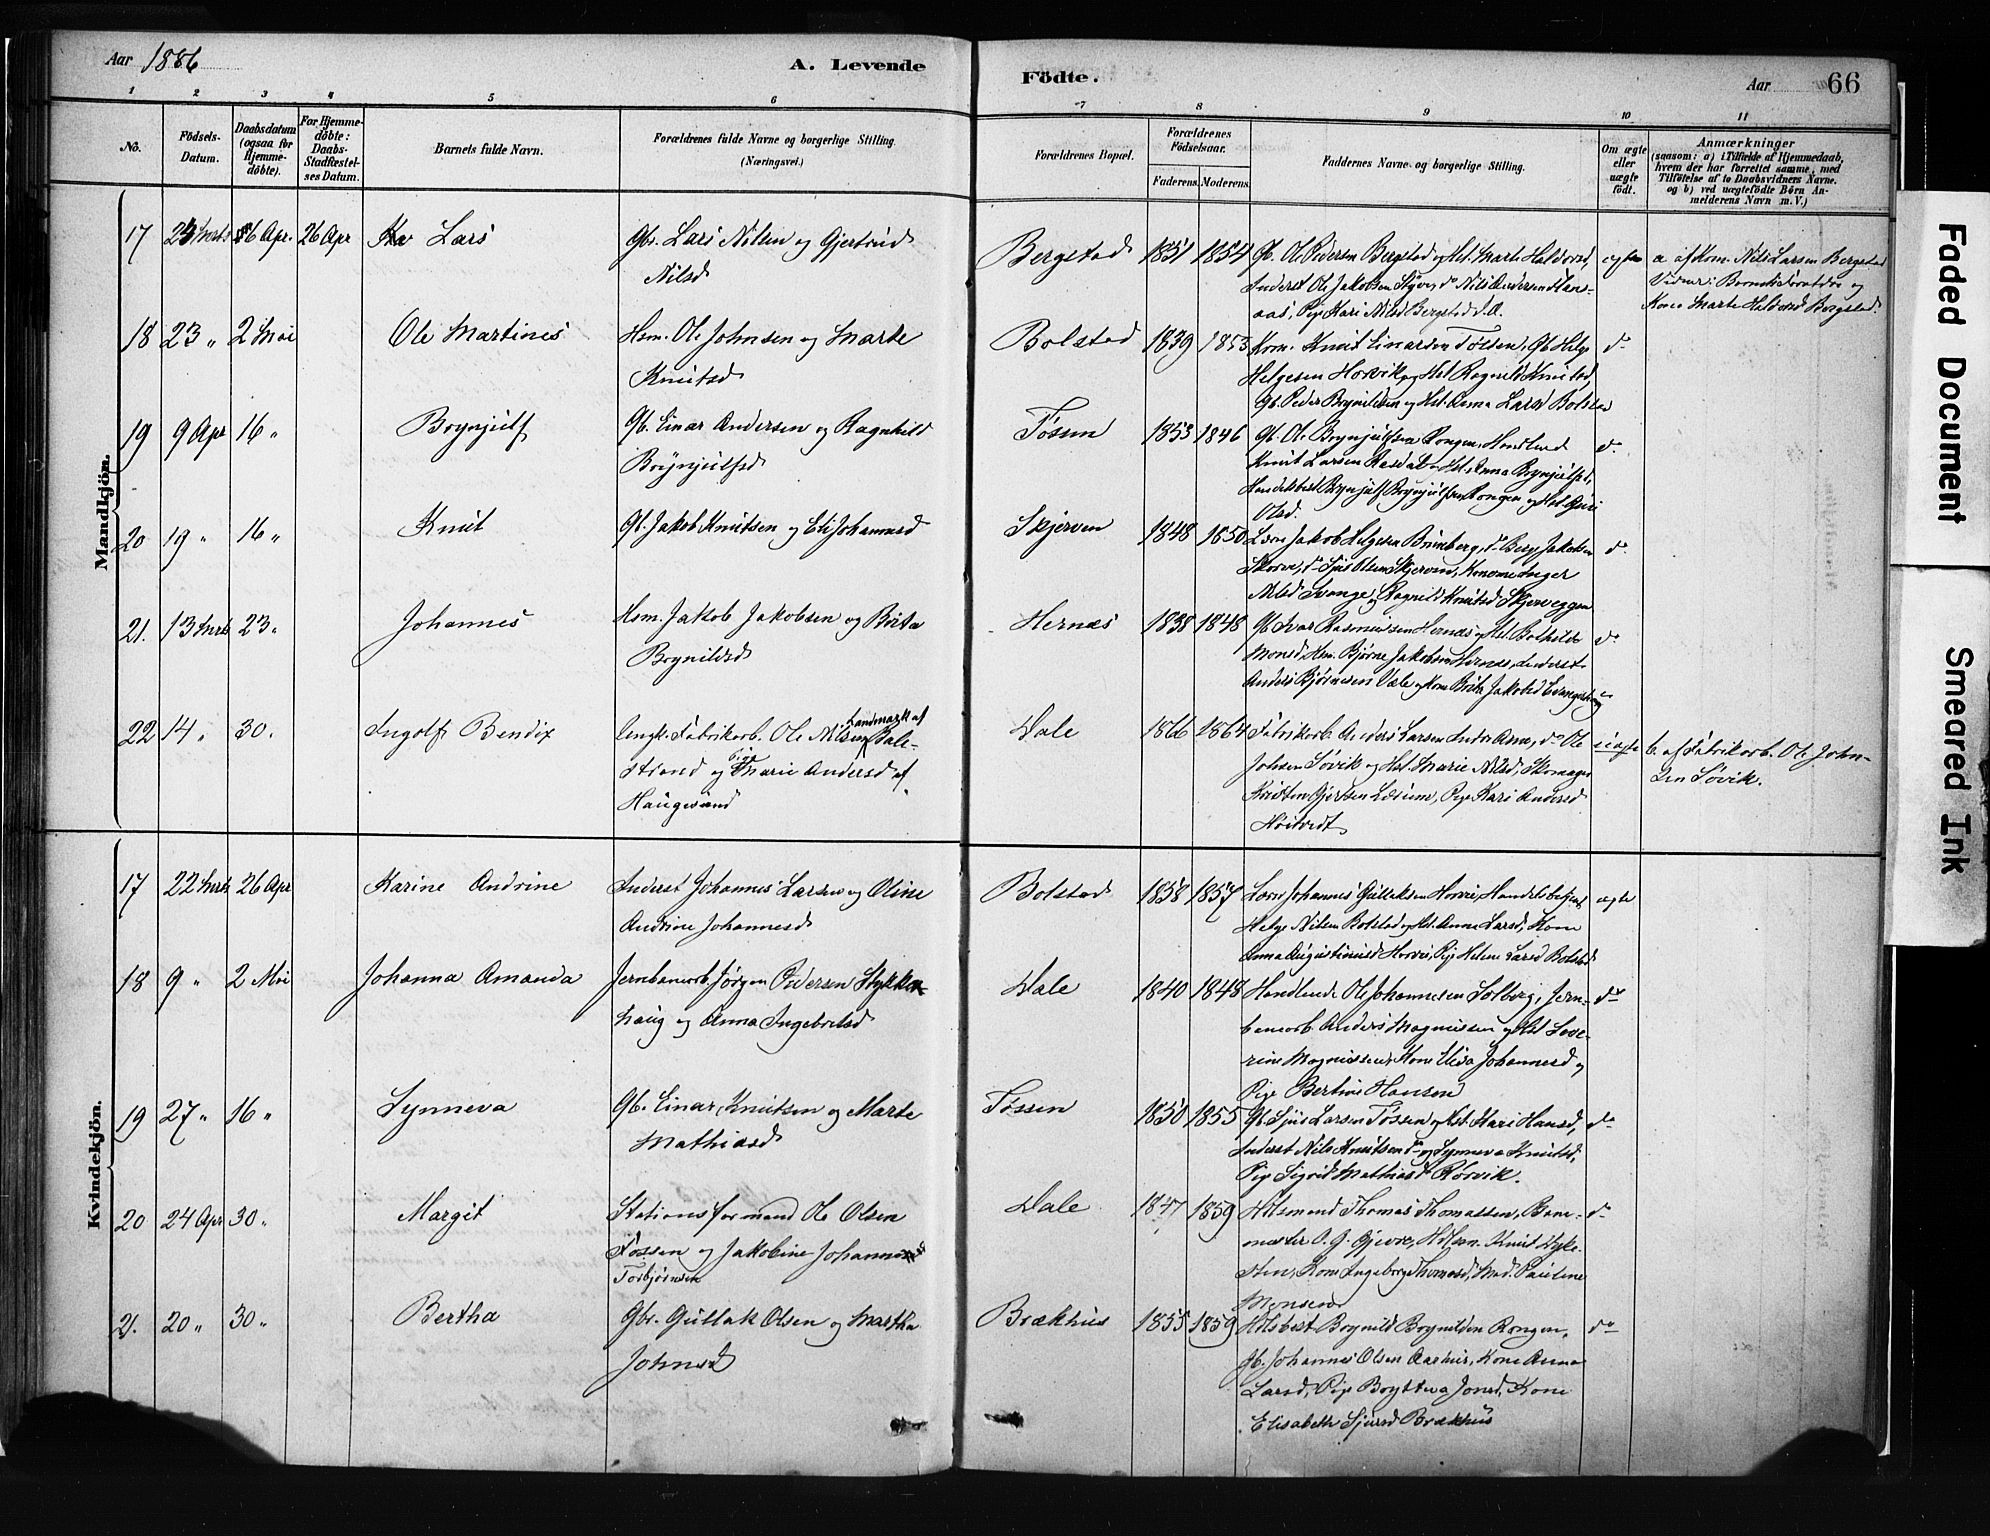 Aar 1886
A. Levende
Födte.
Aar
66
1 2 3 4 5 6 7 8 9 10 11
No.
Födsels-Datum.
Daabsdatum (ogsaa for Hjemme-døbte).
For Hjemme-døbte: Daabs-Stadfæstel-ses Datum.
Barnets fulde Navn.
Forældrenes fulde Navne og borgerlige Stilling. (Næringsvei.)
Forældrenes Bopæl.
Forældrenes Födselsaar.
Faderens. Moderens.
Faddernes Navne og borgerlige Stilling.
Om ægte eller uægte födt.
Anmærkninger (saasom: a) i Tilfælde af Hjemmedaab, hvem der har forrettet samme, med Tilföielse af to Daabsvidners Navne. og b) ved uægtefödte Börn An-melderens Navn m.V.)
Mandkjön.
17 Marts 26 Apr. 26 Apr Lars
Gbr. Lars Nilsen og Gjertrud
Nilsd
Bergstad 1851 1854
Gb. Ole Pedersen Bergstad og Hst. Marte Haldorsd,
Inderst Ole Jakobsen Nils Andersen
Pige Kari Nilsd Bergstad
ægte
a. af Kom. Nils Larsen Bergstad
Kone Marte Haldorsd Bergstad.
18 23 " 2 Mai Ole Martines
Hsm. Ole Johnsen og Marte
Knutsd
Bolstad 1839 1853
Kom. Knut Einarsen Tøssen, Gb Helge
Helgesen Horvik og Hst. Ragnild Knutsd,
Gb. Peder Brynildsen og Hst. Anna Larsd Bolstad
do
19 9 Apr 16 " Brynjulf
Gb. Einar Andersen og Ragnhild
Brynjulfsd
Tøssen 1853 1846
Gb. Ole Brynjulfsen Rongen, Handlende
Knut Larsen Rasdal og Hst. Anna Brynjulfsd,
Handelsbest Brynjulf Brynjulfsen Rongen og Hst. Guri
Olsd.
do
20 19 " 16 " Knut
Gb. Jakob Knutsen og Eli Johannesd
Skjerven 1848 1850
Jakob Helgesen Brunberg, do Berge Jakobsen
do Sjur Olsen Skjerven, Kone Inger
Nilsd og Ragnild Knutsd Skjerveggen
do
21. 13 Marts 23 " Johannes
Hsm. Jakob Jakobsen og Brita
Brynildsd
Hernæs 1838 1848
Gb. Ivar Rasmussen Hernæs og Hst. Bothilde
Monsd, Hsm. Bjørne Jakobsen Hernæs, Inderst
Anders Bjørnesen Væle og Kone Brita Jakobsd
do
22 14 " 30. Ingolf Bendix
Ungk. Fabrikarb. Ole Nilsen Landmark af Bale-
strand og Pige Marie Andersd af
Haugesund
Dale 1866 1864
Fabrikarb Anders Larsen do Ole
Johnsen Søvik og Hst. Marie Nilsd, Skomager
Kristen Gjertsen Pige Kari Andersd
uægte
b. af Fabrikarb. Ole John-
sen Søvik.
Kvindekjön.
17 22 Marts 26 Apr Karine Andrine
Inderst Johannes Larsen og Oline
Andrine Johannesd
Bolstad 1858 1857
Johannes Gullaksen Horvei, Handelsbetjent
Helge Nilsen Bolstad og Hst. Anna Larsd, Kone
Anna Augustinusd Horvei, Pige Helene Larsd Bolstad
ægte
18 9 " 2 Mai Johanna Amanda
Jernbanearb. Jørgen Pedersen Stykken-
haug og Anna Ingebretsd
Dale 1840 1848
Handlende Ole Johannesen Solberg, Jern-
banearb. Anders Magnussen og Hst Seve-
rine Magnussen, Kone Elisa Johannesd og
Pige Bertine Hansen
do
19 27 " 16 " Synneva
Gb. Einar Knutsen og Marte
Mathiasd
Tøssen 1850 1855
Gb. Sjur Larsen Tøssen og Hst. Kari Hansd,
Inderst Nils Knutsen do og Synneva Knutsd,
Pige Sigrid Mathiasd Rørvik.
do
20 24 Apr 30 " Margit
Stationsformand Ole Olsen
Fossen og Jakobine Johannesd
Torbjørnsen
Dale 1847 1859
Thomas Thomassen, Bane-
mester O. G. Gjevre, Knut
Kone Ingeborg Thomasd, Mad. Pauline
Monsen
do
21. 20 " 30 " Bertha
Gbr. Gullak Olsen og Martha
Johnsd
Brækhus 1855 1859
Brynild Brynildsen Rongen,
Gb. Johannes Olsen Aarhus, Kone Anna
Larsd, Pige Brytteva Jonsd, Kone
Elisabeth Sjursd Brækhus
do
Faded Document
Smeared Ink